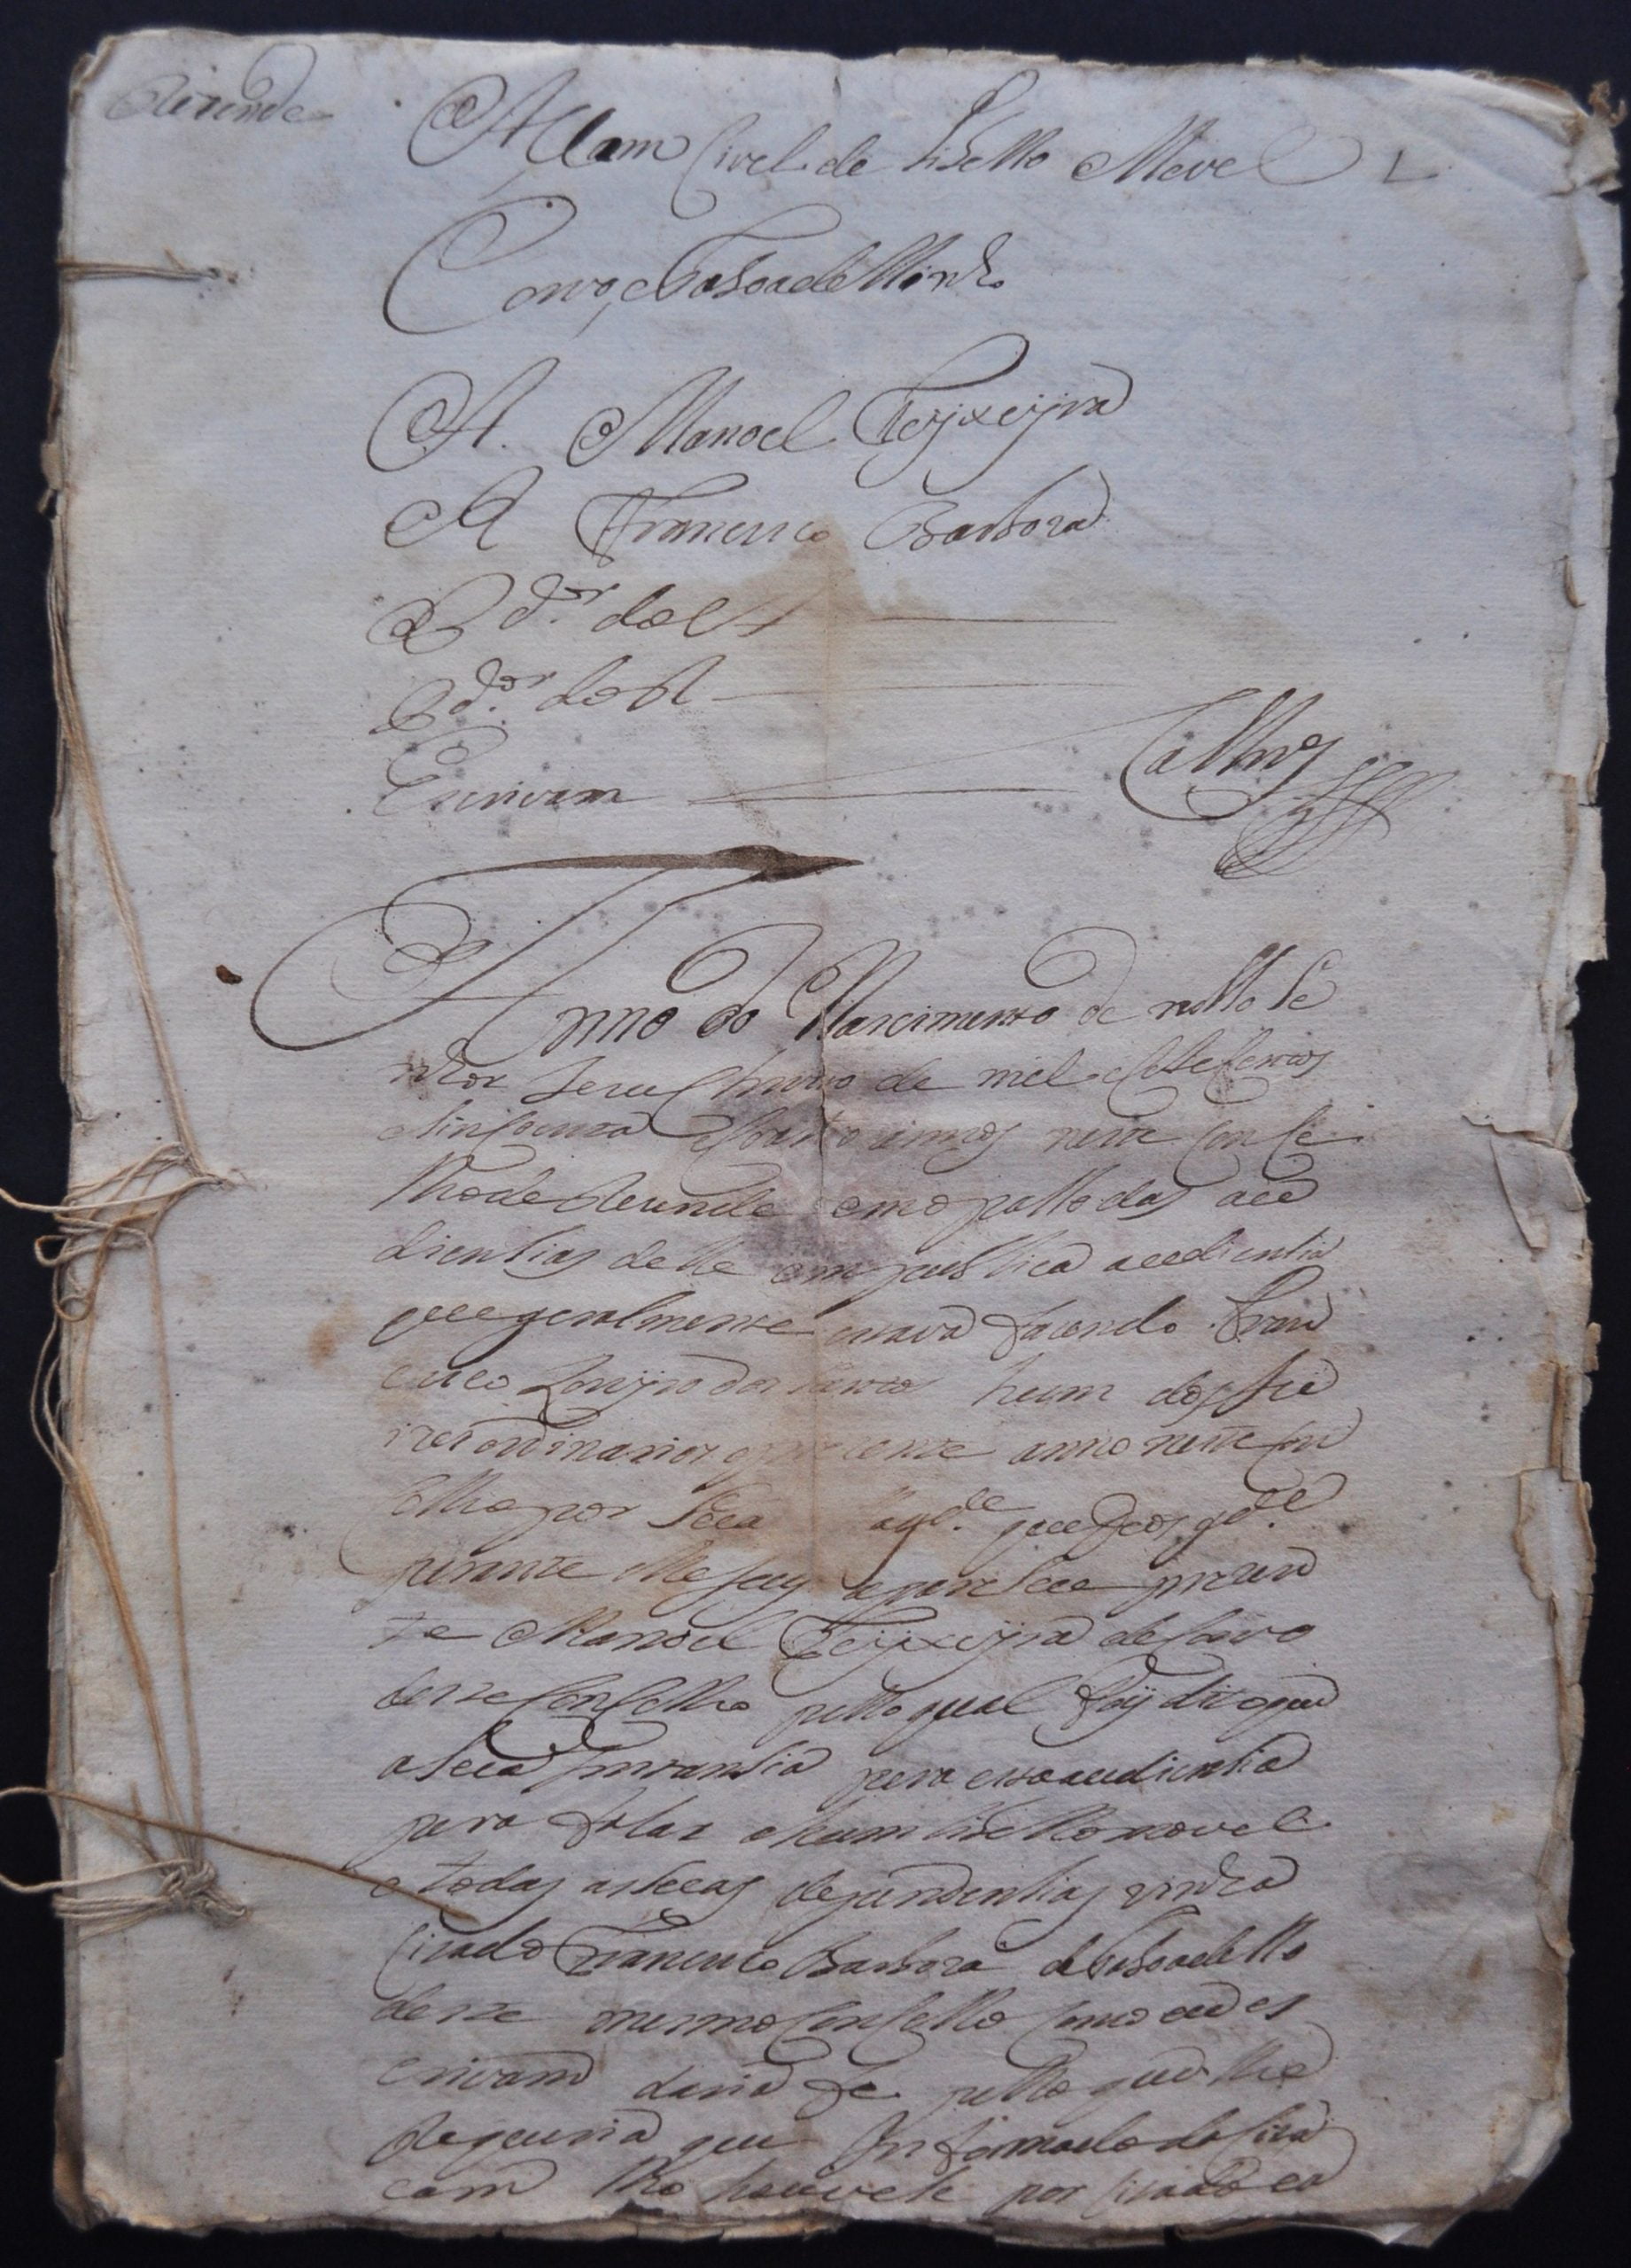 Rezende
Auçam Civel de Libello Movel
Covo, e Taboadello
A. Manoel Teyxeyra
R Francisco Barbora
P.dor do A
P.dor do R
Escrivam Calhros
Anno do Nascimento de nosso Se
nhor Jesu Christo de mil e sete sentos
e sincoenta e annos neste Conse
lho de Rezende em o passo das aau
diensias delle em publica audiensia
que geralmente estava fazendo Fran
cisco dos santos hum dos Jui
zes ordinarios o prezente anno neste con
selho por Sua Mag.de que Deos g.de
perante elle Juiz apareseu prezen
te Manoel Teyxeyra de Covo
deste Conselho pello qual foy dito que
a sua Instansia pera esta audiensia
pera falar a hum libello movel
e todas as suas dependensias vinha
citado Francisco Barbora de Taboadello
deste mesmo Conselho como eu es
crivam daria fe pello que lhe
Requeria que Informado da cita
cam lho houvese por citado ea